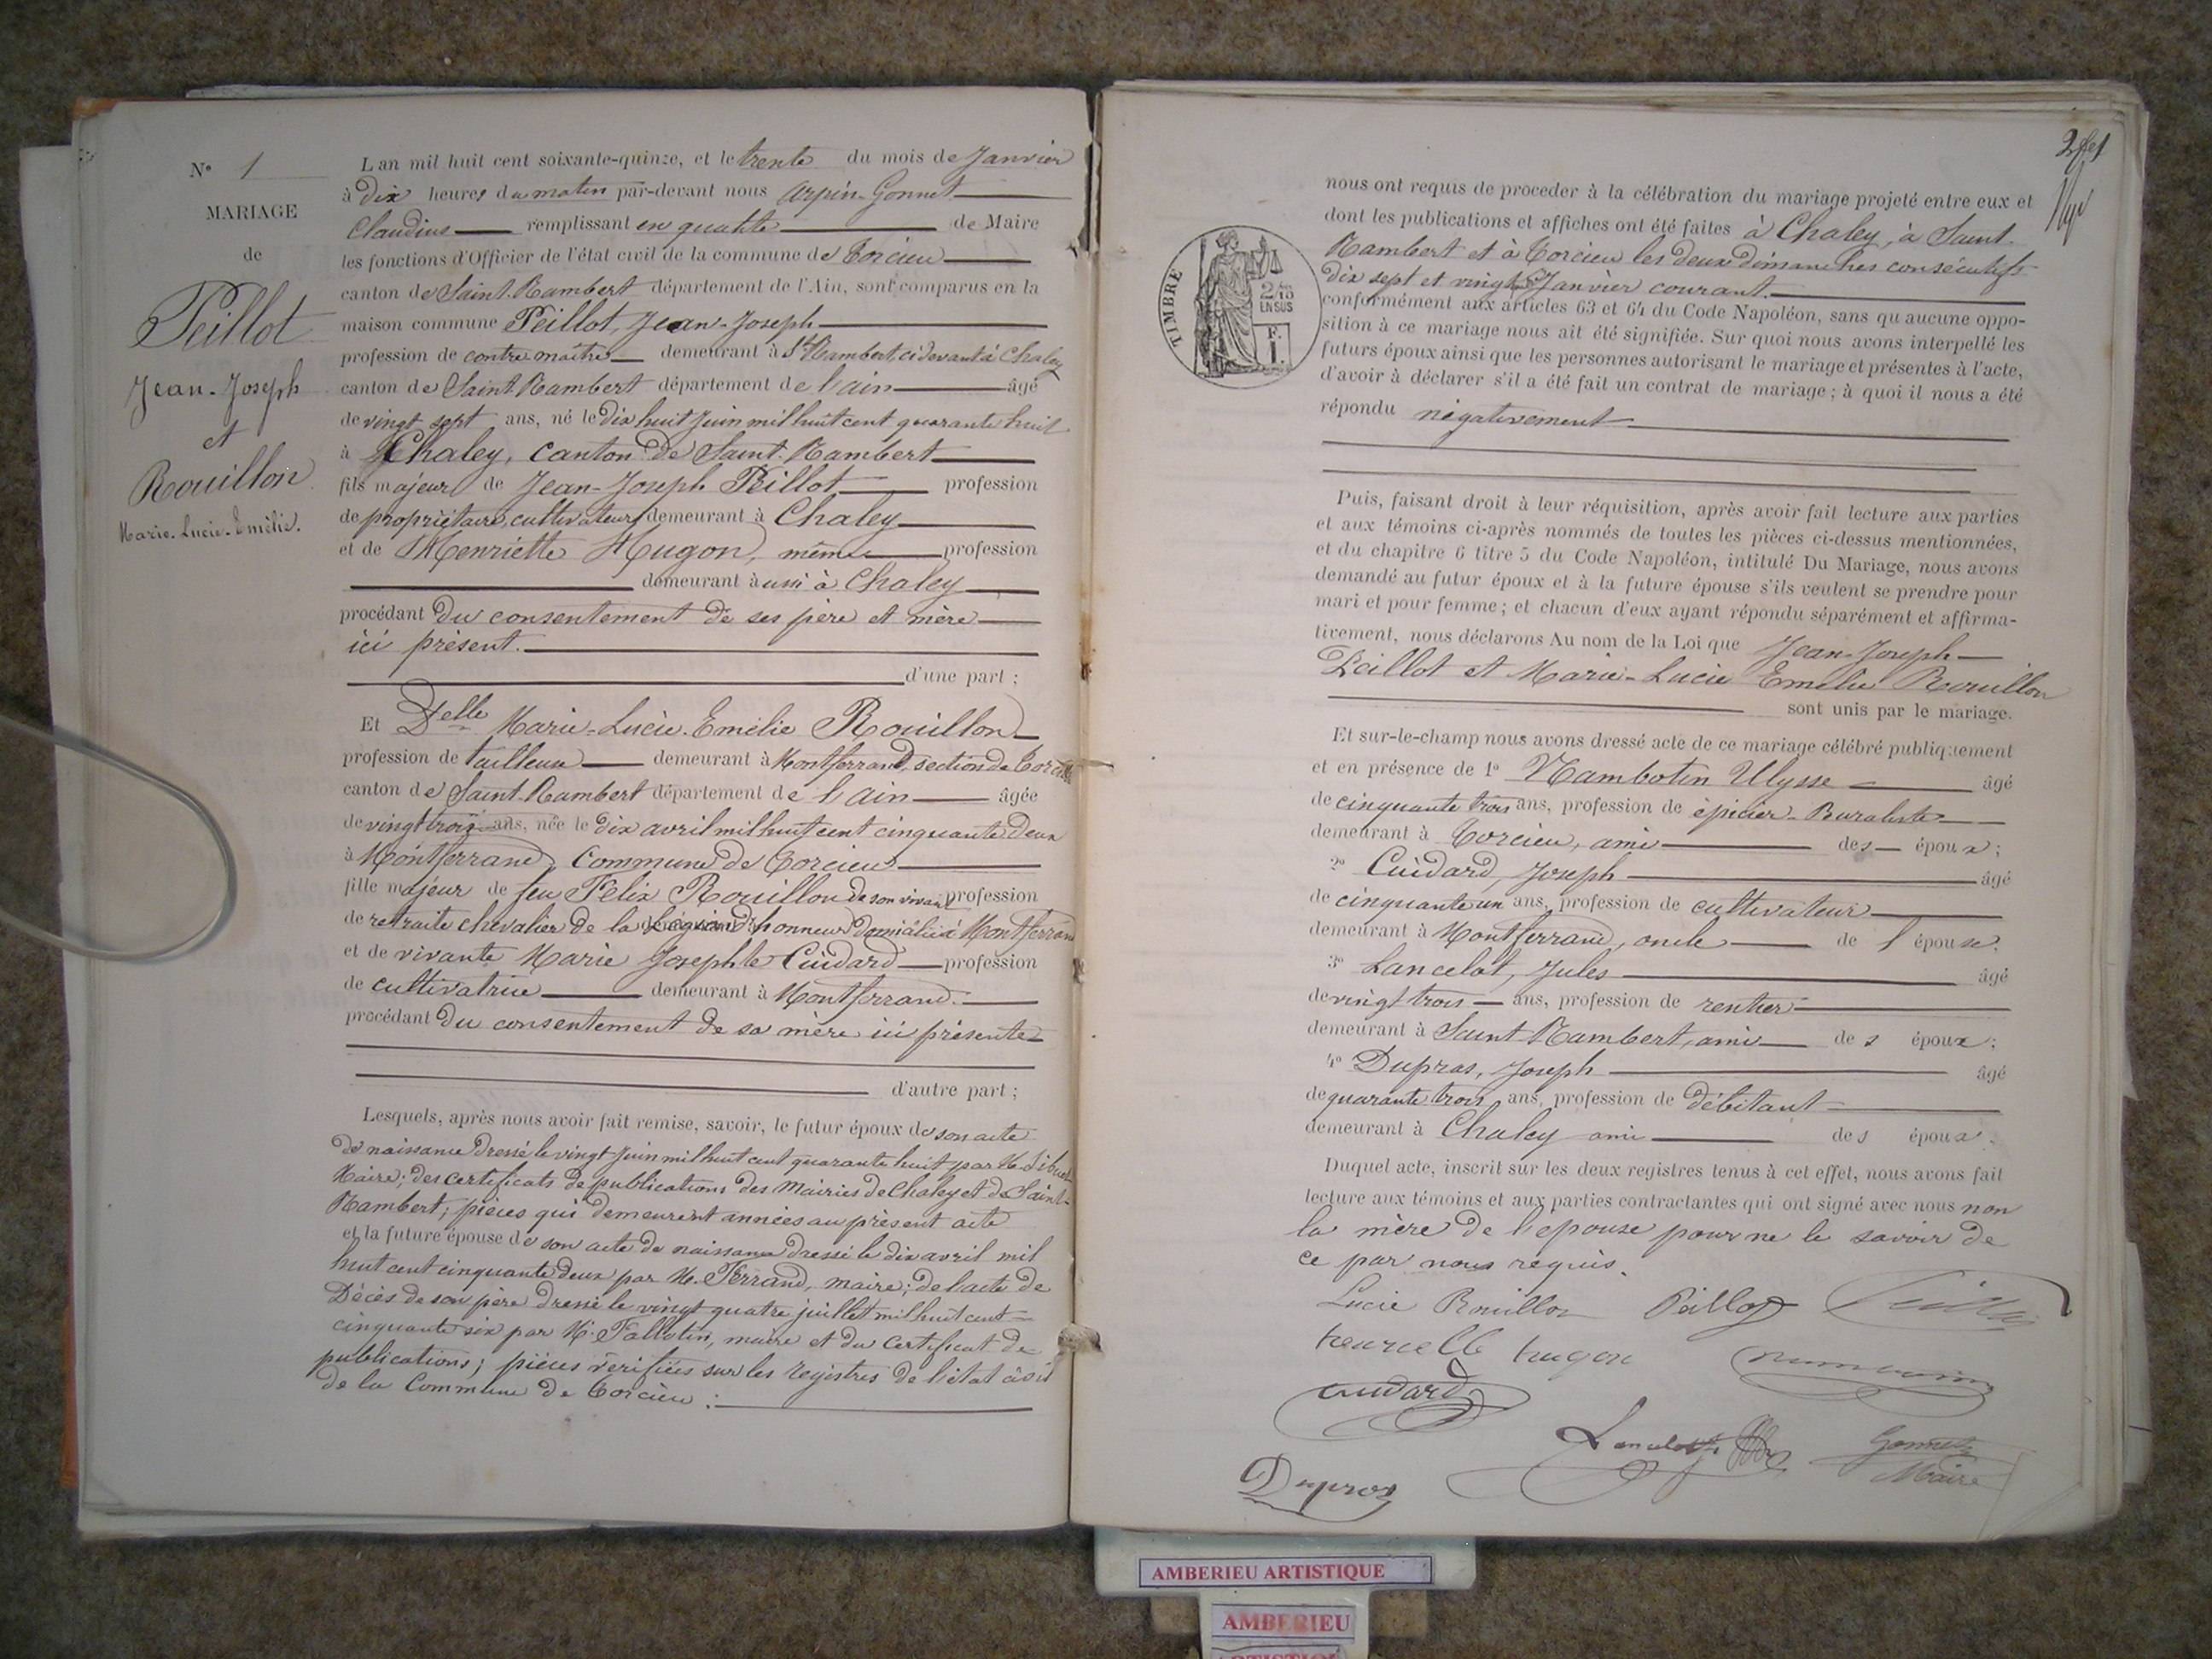 N° 1
MARIAGE
de
Peillot
Jean-Joseph
et
Rouillon
Marie-Lucie-Emélie.
L an mil huit cent soixante-quinze, et le trente du mois de Janvier
à Dix heures du matin par-devant nous Arpin-Gonnet
Claudius remplissant en qualité de Maire
les fonctions d'Officier de l'état civil de la commune de Torcieu
canton de Saint-Rambert département de l'Ain, sont comparus en la
maison commune Peillot, Jean-Joseph
profession de contremaître demeurant à St Rambert, ci devant à Chaley
canton de Saint-Rambert département de l'ain âgé
de vingt sept ans, né le Dix huit Juin mil huit cent quarante huit
à Chaley, canton de Saint-Rambert
fils majeur de Jean-Joseph Peillot profession
de propriétaire, cultivateur demeurant à Chaley
et de Henriette Hugon, même profession
demeurant aussi à Chaley
procédant Du consentement de ses père et mère
ici présent.
d'une part ;
Et Delle Marie-Lucie-Emélie Rouillon
profession de tailleuse demeurant à Montferrand, section de Torcieu
canton de Saint-Rambert département de l'ain âgée
de vingt trois ans, née le Dix avril mil huit cent cinquante Deux
à Montferrand, Commune de Torcieu
fille majeur de feu Félix Rouillon de son vivant profession
de retraité chevalier de la Légion d'honneur domicilié à Montferrand
et de vivante Marie Josephte Cuidard profession
de cultivatrice demeurant à Montferrand.
procédant Du consentement de sa mère ici présente
d'autre part ;
Lesquels, après nous avoir fait remise, savoir, le futur époux de son acte
de naissance Dressé le vingt Juin mil huit cent quarante huit par M.
Maire; des certificats de publications des Mairies de Chaley et de Saint-
Rambert; pièces qui demeurent annéés au présent acte
et la future épouse de son acte de naissance dressé le dix avril mil
huit cent cinquante deux par M. Ferrand, maire; de l'acte de
Décès de son père dressé le vingt quatre juillet mil huit cent
cinquante six par M. Fallotin, maire et du certificat de
publications; pièces vérifiées sur les registres de l'état civil
de la Commune de Torcieu :
TIMBRE
2/10
EN SUS
F.
1.
nous ont requis de proceder à la célébration du mariage projeté entre eux et
dont les publications et affiches ont été faites à Chaley, à Saint-
Rambert et à Torcieu les deux dimanches consécutifs
dix sept et vingt Janvier courant.
conformément aux articles 63 et 64 du Code Napoléon, sans qu aucune oppo-
sition à ce mariage nous ait été signifiée. Sur quoi nous avons interpellé les
futurs époux ainsi que les personnes autorisant le mariage et présentes à l'acte,
d'avoir à déclarer s'il a été fait un contrat de mariage ; à quoi il nous a été
répondu négativement
Puis, faisant droit à leur réquisition, après avoir fait lecture aux parties
et aux témoins ci-après nommés de toutes les pièces ci-dessus mentionnées,
et du chapitre 6 titre 5 du Code Napoléon, intitulé Du Mariage, nous avons
demandé au futur époux et à la future épouse s'ils veulent se prendre pour
mari et pour femme ; et chacun d'eux ayant répondu séparément et affirma-
tivement, nous déclarons Au nom de la Loi que Jean-Joseph
Peillot et Marie-Lucie Emélie Rouillon
sont unis par le mariage.
Et sur-le-champ nous avons dressé acte de ce mariage célébré publiquement
et en présence de 1° Nambotin Ulysse âgé
de cinquante trois ans, profession de épicier-Buraliste
demeurant à Torcieu, ami des époux ;
2° Cuidard, Joseph âgé
de cinquante un ans, profession de cultivateur
demeurant à Montferrand, oncle de l épouse ;
3° Lancelot, Jules âgé
de vingt trois ans, profession de rentier
demeurant à Saint-Rambert, ami des époux ;
4° Dupras, Joseph âgé
de quarante trois ans, profession de Débitant
demeurant à Chaley ami des époux.
Duquel acte, inscrit sur les deux registres tenus à cet effet, nous avons fait
lecture aux témoins et aux parties contractantes qui ont signé avec nous non
la mère de l'epouse pour ne le savoir de
ce par nous requis.
Lucie Rouillon Peillot
henriette hugon
cuidard
Lancelot Gonnet
Maire
Dupras
AMBERIEU ARTISTIQUE
AMBERIEU
ARTISTIQUE